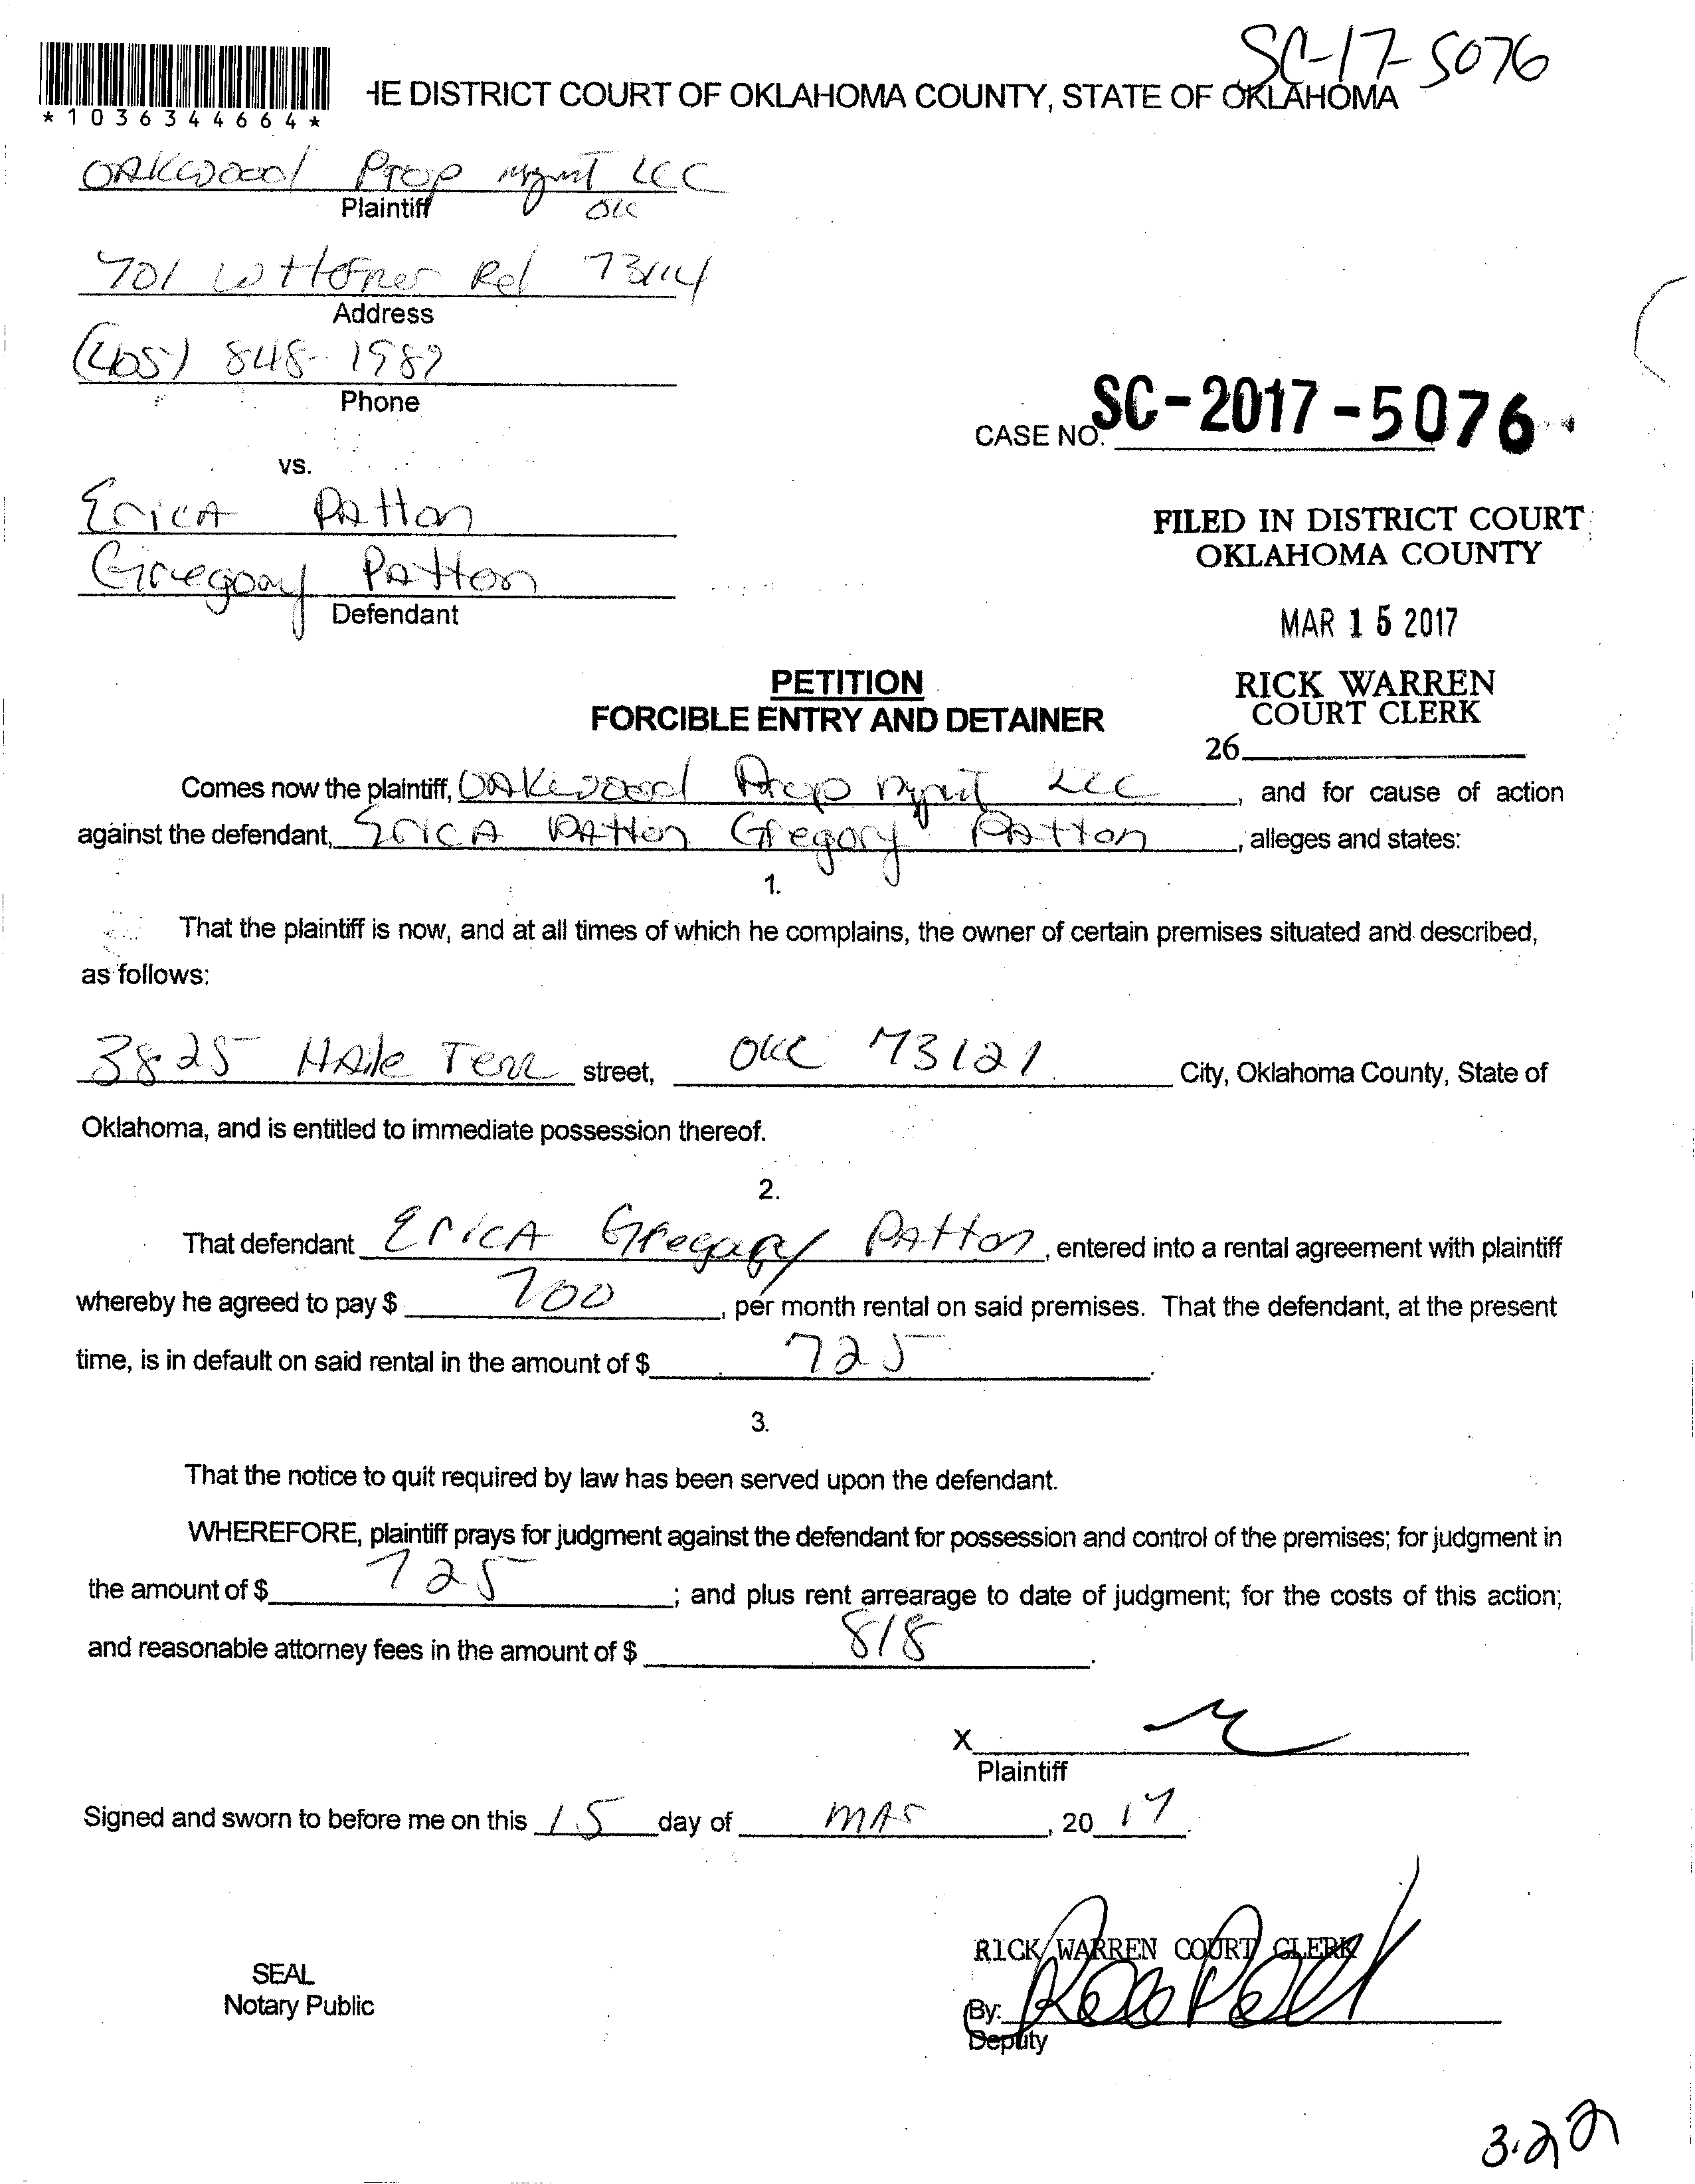 SC-17-5076
HE DISTRICT COURT OF OKLAHOMA COUNTY, STATE OF OKLAHOMA
*1036344664*
OAKwood Prop Mgmt LLC
Plaintiff OKC
701 W Hefner Rd 73114
Address
(405) 848-1987
Phone
CASE NO. SC-2017-5076
vs.
EricA PAtton
Gregory PAtton
Defendant
FILED IN DISTRICT COURT
OKLAHOMA COUNTY
MAR 15 2017
RICK WARREN
COURT CLERK
26
PETITION
FORCIBLE ENTRY AND DETAINER
Comes now the plaintiff, OAKwood Prop Mgmt LLC, and for cause of action
against the defendant, EricA PAtton Gregory PAtton, alleges and states:
1.
That the plaintiff is now, and at all times of which he complains, the owner of certain premises situated and described,
as follows:
3825 HAle Terr street, OKC 73121 City, Oklahoma County, State of
Oklahoma, and is entitled to immediate possession thereof.
2.
That defendant EricA Gregory PAtton, entered into a rental agreement with plaintiff
whereby he agreed to pay $ 700, per month rental on said premises. That the defendant, at the present
time, is in default on said rental in the amount of $ 725.
3.
That the notice to quit required by law has been served upon the defendant.
WHEREFORE, plaintiff prays for judgment against the defendant for possession and control of the premises; for judgment in
the amount of $ 725; and plus rent arrearage to date of judgment; for the costs of this action;
and reasonable attorney fees in the amount of $ 818.
X
Plaintiff
Signed and sworn to before me on this 15 day of MAr, 20 17.
RICK WARREN COURT CLERK
SEAL
Notary Public
By:
Deputy
3.22